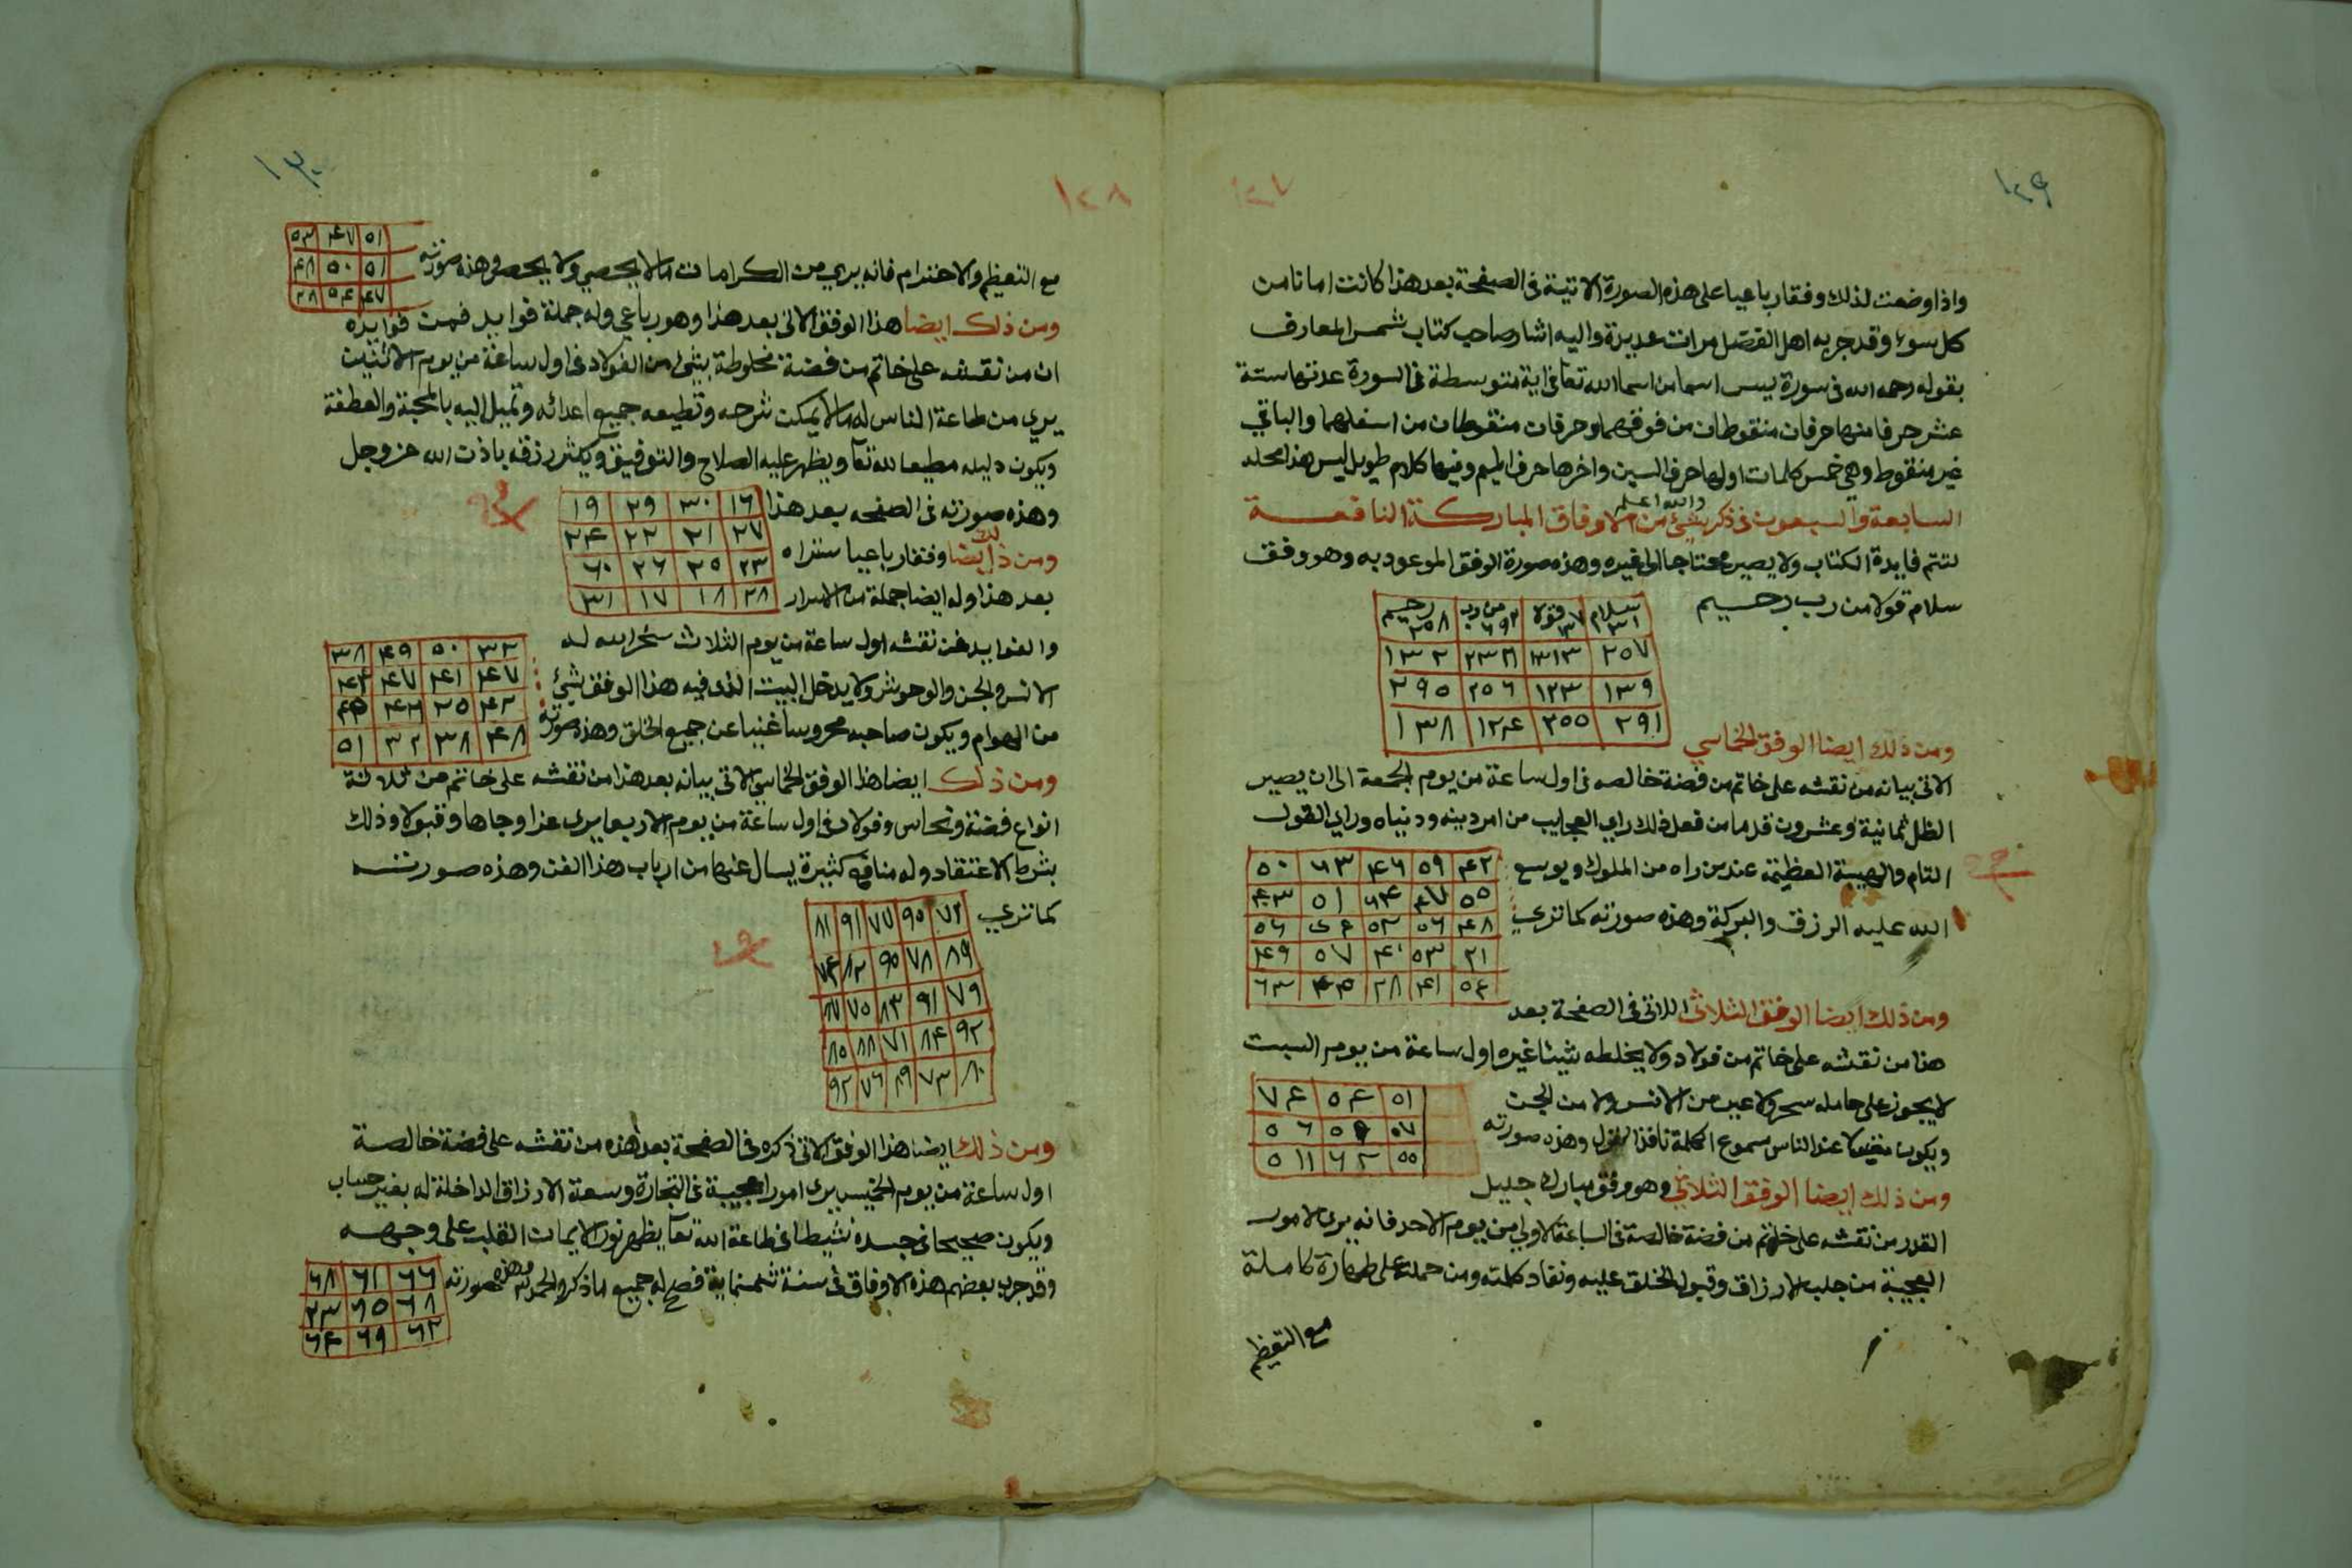 ١٢٩
١٢٧
واذا وضعت لذلك وفقا رباعيا على هذه الصورة الاتية فى الصفحة بعد هذا كانت امانا من
كل سوء وقد جربه اهل الفضل مرات عديدة واليه اشار صاحب كتاب شمس المعارف
بقوله رحمه الله فى سورة يس اسما من اسما الله تعا فى اية متوسطة فى السورة عدتها ستة
عشر حرفا منها حرفان منقوطان من فوقهما وحرفان منقوطان من اسفلهما والباقي
غير منقوط وهى خمس كلمات اولها حرف السين واخرها حرف الميم وفيها كلام طويل ليس هذا محله
والله اعلم
السابعة والسبعون فى ذكر شئ من الاوفاق المباركة النافعة
لتتم فايدة الكتاب ولا يصير محتاجا الى غيره وهذه صورة الوفق الموعود به وهو وفق
سلام قولا من رب رحيم
سلام ١٣١ قولا ١٣٧ من رب ٢٩٢ رحيم ٢٥٨
٢٥٧ ١٣١٣ ٢٣٦ ١٣٢
١٣٩ ١٢٣ ٢٥٦ ٢٩٥
٢٩١ ٢٥٥ ١٢٤ ١٣٨
ومن ذلك ايضا الوفق الخماسي
الاتى بيانه من نقشه على خاتم من فضة خالصه فى اول ساعة من يوم الجمعة الى ان يصير
الظل ثمانية وعشرون قدما من فعل ذلك راي العجايب من امر دينه ودنياه وراي القول
التام والهيبة العظيمة عند من راه من الملوك ويوسع
الله عليه الرزق والبركة وهذه صورته كما ترى
٤٢ ٥٩ ٤٦ ٦٣ ٥٠
٥٥ ٤٧ ٦٤ ٥١ ٤٣
٤٨ ٥٦ ٥٢ ٥٦
٢١ ٥٣ ٤٠ ٥٧ ٤٩
٥٤ ٤١ ٢٨ ٤٥ ٦٣
ومن ذلك ايضا الوفق الثلاثى الاتى فى الصفحة بعد
هذا من نقشه على خاتم من فولاد ولا يخلطه شيئا غيره اول ساعة من يوم السبت
لا يجوز على حامله سحر ولا عين من الانس ولا من الجن
ويكون مقبولا عند الناس مسموع الكلمة نافذ القول وهذه صورته
٥١ ٥٤ ٧٤
٥٧ ٥٩ ٥٦
٥٥ ٦٢ ٥١١
ومن ذلك ايضا الوفق الثلاثي وهو وفق مبارك جليل
القدر من نقشه على خاتم من فضة خالصة فى الساعة الاولي من يوم الاحد فانه يرى الامور
العجيبة من جلب الارزاق وقبول الخلق عليه ونفاد كلمته ومن حمله على طهارة كاملة
مع التعظيم
١٣٠
١٢٨
مع التعظيم والاحترام فانه يري من الكرامات ما لا يحصي ولا يحصر وهذه صورته
٥١ ٤٧ ٥٣
٥١ ٥٠ ٤٨
٤٧ ٥٤ ٢٨
ومن ذلك ايضا هذا الوفق الاتى بعد هذا وهو رباعي وله جملة فوايد فمن فوايده
ان من نقشه على خاتم من فضة مخلوطة بشئ من الفولاد فى اول ساعة من يوم الاثنين
يري من طاعة الناس له ما لا يمكن شرحه وتطيعه جميع اعدائه وتميل اليه بالمحبة والعطفة
ويكون دليله مطيعا لله تعا ويظهر عليه الصلاح والتوفيق ويكثر رزقه باذن الله عز وجل
وهذه صورته فى الصفحه بعد هذا
١٦ ٣٠ ٢٩ ١٩
٢٧ ٢١ ٢٢ ٢٤
٢٣ ٢٥ ٢٦ ٦٠
٢٨ ١٨ ١٧ ٣١
ومن ذلك ايضا وفقا رباعيا ستراه
بعد هذا وله ايضا جملة من الاسرار
والفوايد فمن نقشه اول ساعة من يوم الثلاث سخر الله له
الانس والجن والوحوش ولا يدخل البيت الذى فيه هذا الوفق شئ
من الهوام ويكون صاحبه محروسا غنيا عن جميع الخلق وهذه صورته
٣٢ ٥٠ ٤٩ ٣٨
٤٧ ٤١ ٤٧ ٤٤
٤٢ ٢٥ ٤٦
٤٨ ٣٨ ٣٢ ٥١
ومن ذلك ايضا هذا الوفق الخماسي الاتى بيانه بعد هذا من نقشه على خاتم من ثلاثة
انواع فضة ونحاس وفولاد فى اول ساعة من يوم الاربعا يرى عزا وجاها وقبولا وذلك
بشرط الاعتقاد وله منافع كثيرة يسال عنها من ارباب هذا الفن وهذه صورته
كما تري
٧٢ ٩٥ ٧٧ ٩١ ٨١
٨٩ ٧٨ ٩٥ ٨٢ ٧٤
٧٩ ٩١ ٨٣ ٧٥ ٨٧
٩٢ ٨٤ ٧١ ٨٨ ٨٥
٨٠ ٧٣ ٨٩ ٧٦ ٩٢
ومن ذلك ايضا هذا الوفق الاتى ذكره فى الصفحة بعد هذه من نقشه على فضة خالصة
اول ساعة من يوم الخميس يرى امورا عجيبة فى التجارة وسعة الارزاق الداخلة له بغير حساب
ويكون صحيحا فى جسده نشيطا فى طاعة الله تعا يظهر نور الايمان القلب على وجهه
وقد جرب بعضهم هذه الاوفاق فى سنة ثمنماية فصح له جميع ما ذكر والحمد لله وهذه صورته
٦٦ ٦١ ٦٨
٦٨ ٦٥ ٢٣
٦٢ ٦٩ ٦٤